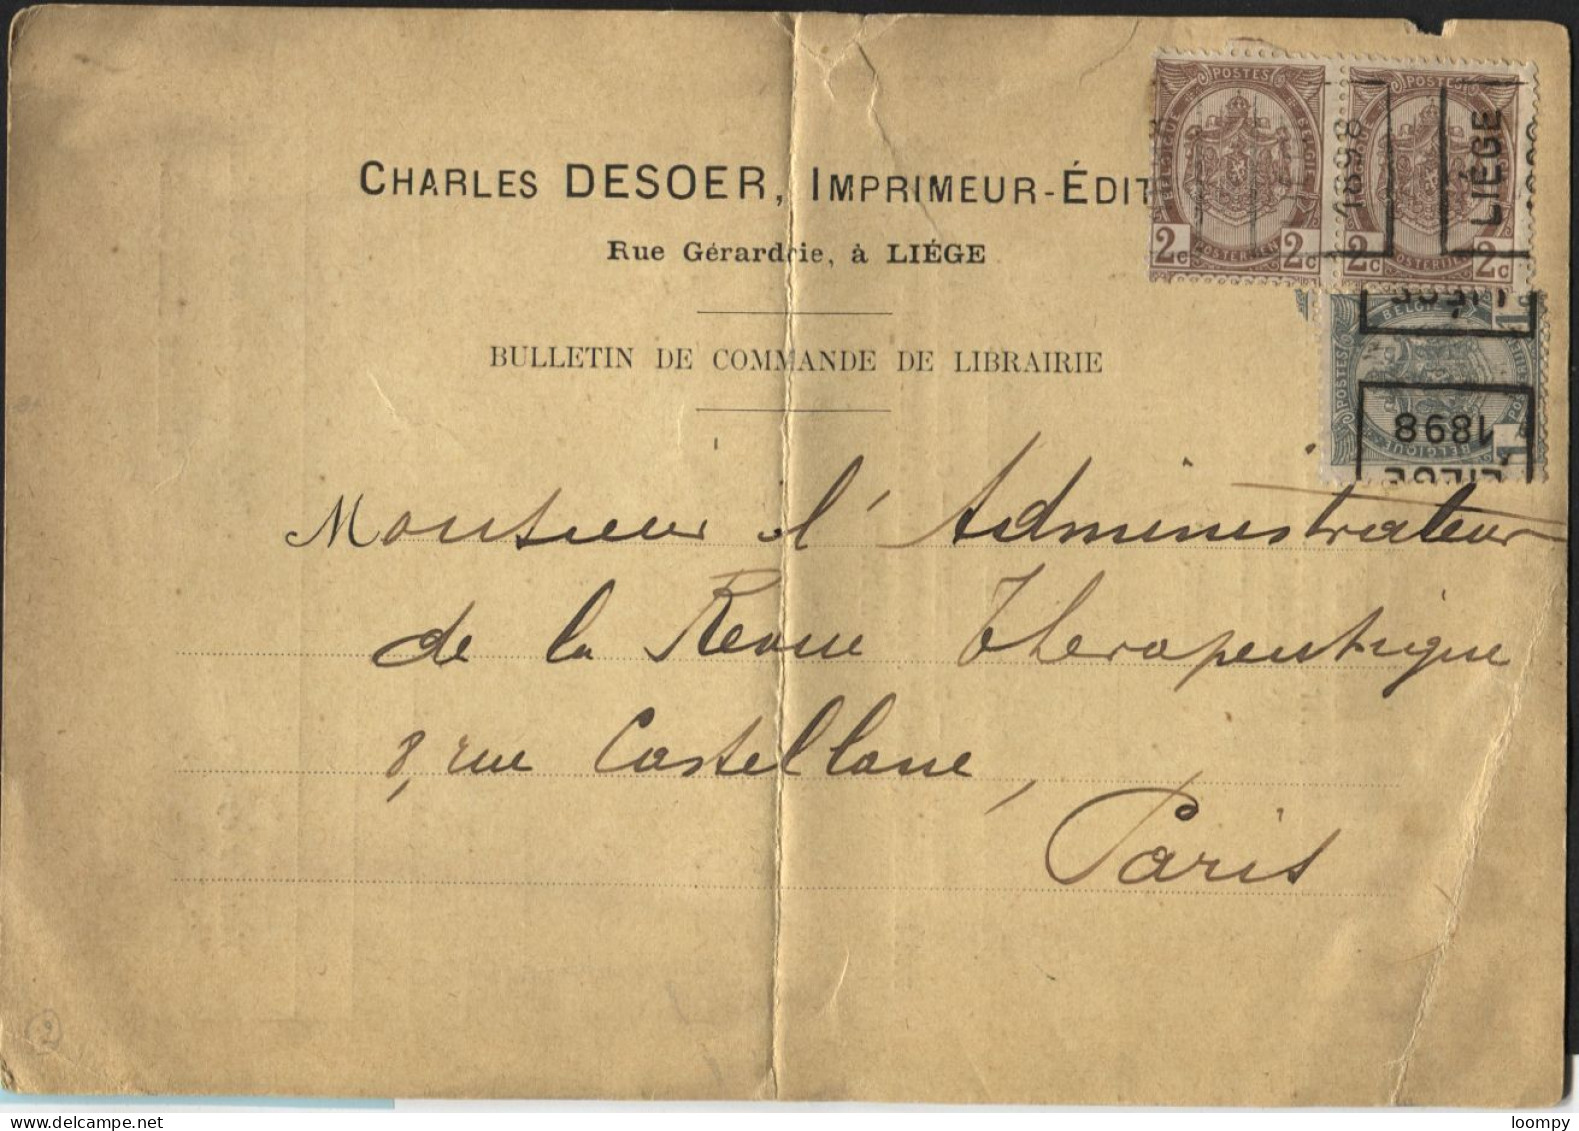 CHARLES DESOER, IMPRIMEUR-ÉDIT
Rue Gérardrie, à LIÉGE
BULLETIN DE COMMANDE DE LIBRAIRIE
Monsieur l'Administrateur
de la Revue Therapeutique
8, rue Castellane,
Paris
POSTES
BELGIQUE
BELGIE
POSTERIJEN
2c 2c
1898
POSTES
POSTERIJEN
2c 2c
LIÉGE
POSTES
BELGIQUE
1898
LIÉGE
2
loompy